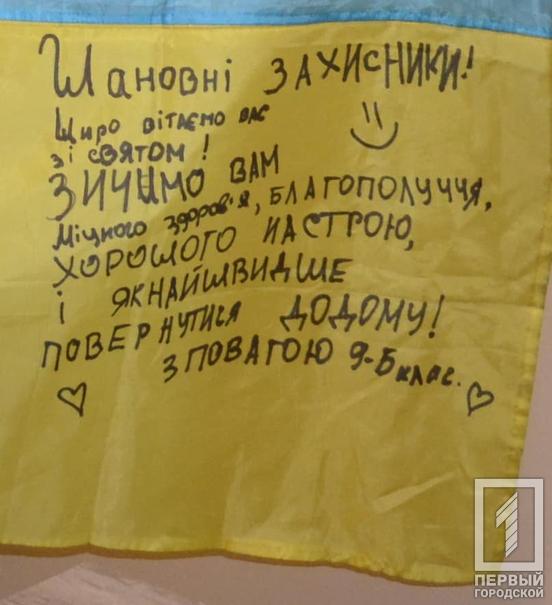 Шановні ЗАХИСНИКИ!
Щиро вітаємо вас
зі святом!
ЗИЧИМО ВАМ
Міцного здоров'я, БЛАГОПОЛУЧЧЯ,
ХОРОШОГО НАСТРОЮ,
і ЯКНАЙШВИДШЕ
ПОВЕРНУТИСЯ ДОДОМУ!
З ПОВАГОЮ 9-Б клас.
1
ПЕРВЫЙ
ГОРОДСКОЙ